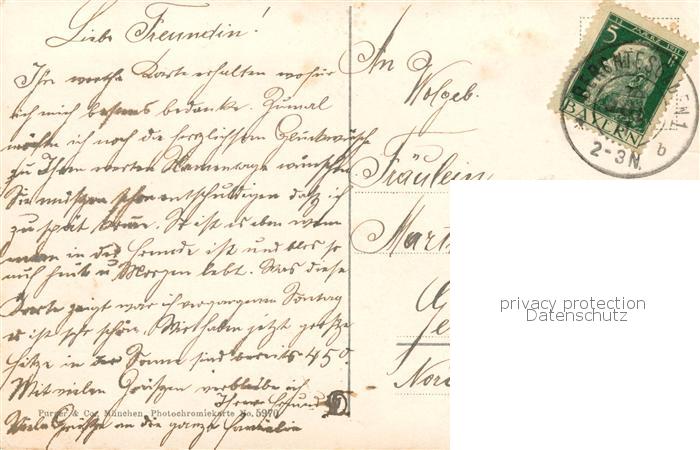 Liebe Freundin!
Ihre werthe Karte erhalten wofür
ich mich bestens bedanke. Zumal
möchte ich noch die herzlichsten Glückwünsche
zu Ihrem werten Namenstage wünschen.
Sie müssen schon entschuldigen daß ich
zu spät komme. Es ist eben wenn
man in der Fremde ist und blos so
auch heut u Morgen lebt. Was diese
Karte zeigt war ich vergangenen Sonntag
es ist sehr schön. Wir haben jetzt große
Hitze in der Sonne sind bereits 45°
Mit vielen Grüßen verbleibe ich
Ihr Freund
Viele Grüße an die ganze Familie
Purger & Co., München, Photochromiekarte No. 5970
An
Wolgeb.
Fräulein
Mart
Nor
5
BAYERN
BERCHTESGADEN 1
2-3N. b
privacy protection
Datenschutz